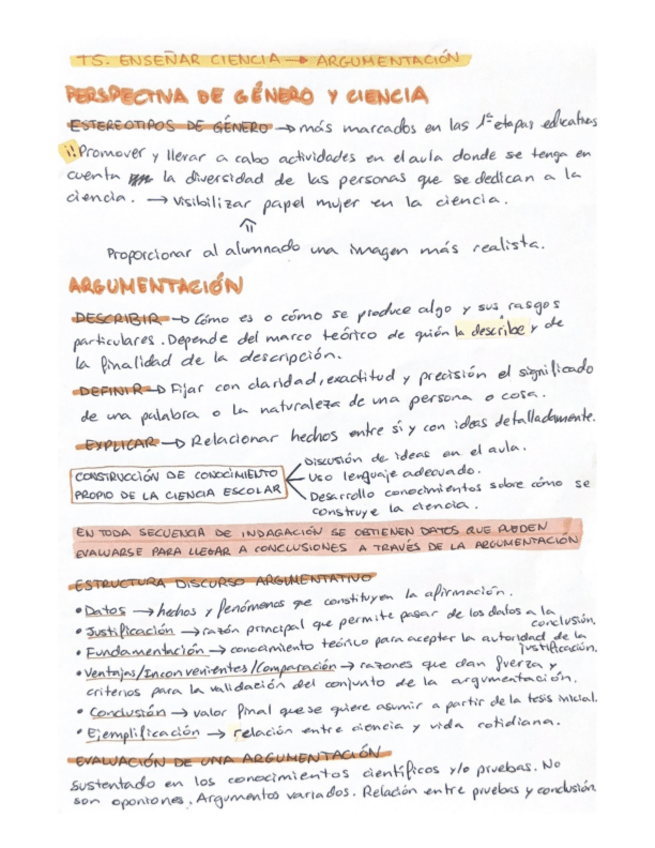 T5. ENSEÑAR CIENCIA → ARGUMENTACIÓN
PERSPECTIVA DE GÉNERO Y CIENCIA
ESTEREOTIPOS DE GÉNERO → más marcados en las 1ª etapas educativas
¡! Promover y llevar a cabo actividades en el aula donde se tenga en
cuenta la diversidad de las personas que se dedican a la
ciencia. → Visibilizar papel mujer en la ciencia.
Proporcionar al alumnado una imagen más realista.
ARGUMENTACIÓN
DESCRIBIR → Cómo es o cómo se produce algo y sus rasgos
particulares. Depende del marco teórico de quién la describe y de
la finalidad de la descripción.
DEFINIR → Fijar con claridad, exactitud y precisión el significado
de una palabra o la naturaleza de una persona o cosa.
EXPLICAR → Relacionar hechos entre sí y con ideas detalladamente.
CONSTRUCCIÓN DE CONOCIMIENTO
PROPIO DE LA CIENCIA ESCOLAR
Discusión de ideas en el aula.
Uso lenguaje adecuado.
Desarrollo conocimientos sobre cómo se
construye la ciencia.
EN TODA SECUENCIA DE INDAGACIÓN SE OBTIENEN DATOS QUE PUEDEN
EVALUARSE PARA LLEGAR A CONCLUSIONES A TRAVÉS DE LA ARGUMENTACIÓN
ESTRUCTURA DISCURSO ARGUMENTATIVO
• Datos → hechos y fenómenos que constituyen la afirmación.
• Justificación → razón principal que permite pasar de los datos a la
conclusión.
• Fundamentación → conocimiento teórico para aceptar la autoridad de la
justificación.
• Ventajas/Inconvenientes/Comparación → razones que dan fuerza y
criterios para la validación del conjunto de la argumentación.
• Conclusión → valor final que se quiere asumir a partir de la tesis inicial.
• Ejemplificación → relación entre ciencia y vida cotidiana.
EVALUACIÓN DE UNA ARGUMENTACIÓN
Sustentado en los conocimientos científicos y/o pruebas. No
son oponiones. Argumentos variados. Relación entre pruebas y conclusión